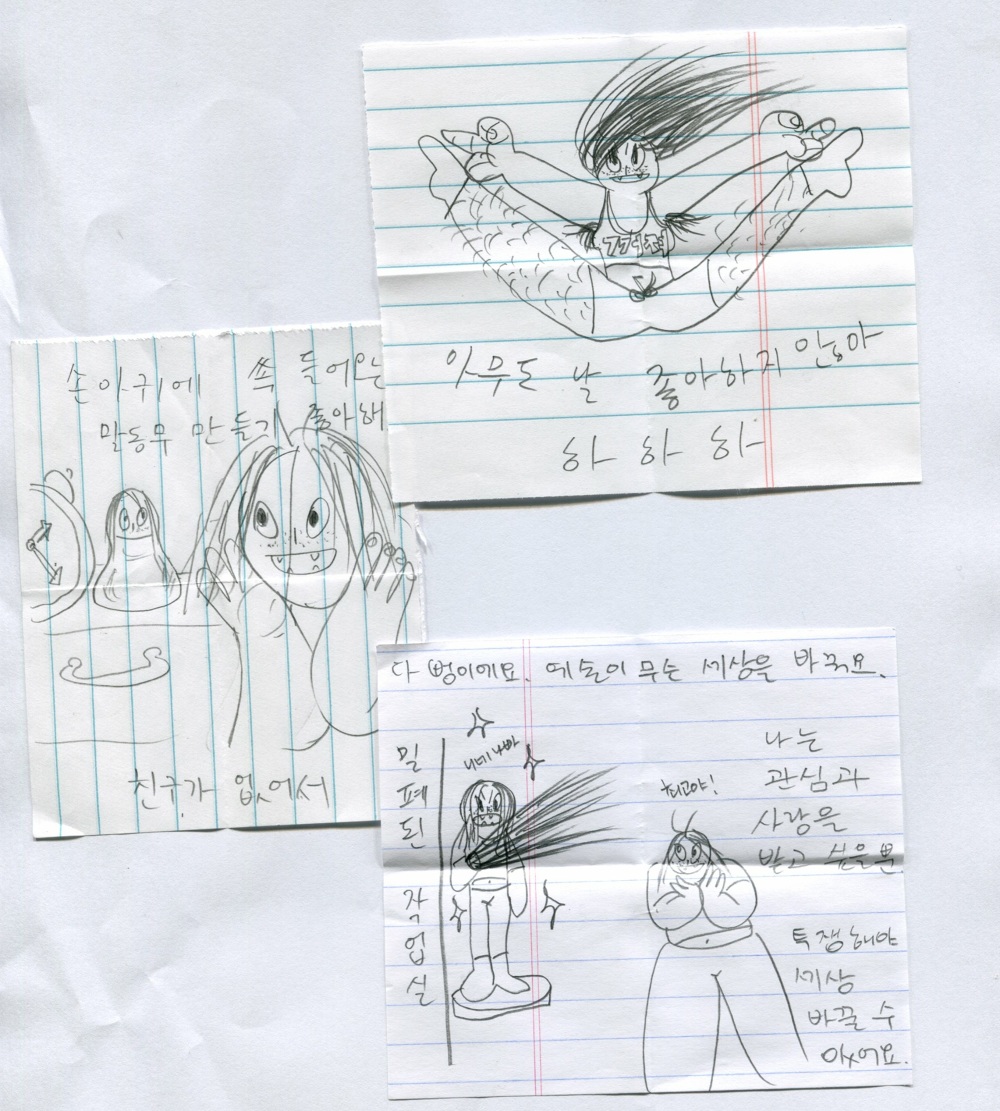 아무도 날 좋아하지 않아
하 하 하
손아귀에 쏙 들어오는
말동무 만들기 좋아해
친구가 없어서
다 뻥이에요. 예술이 무슨 세상을 바꿔요.
밀폐된 작업실
최고야!
나는
관심과
사랑을
받고 싶을뿐
투쟁해야
세상
바꿀 수
있어요.